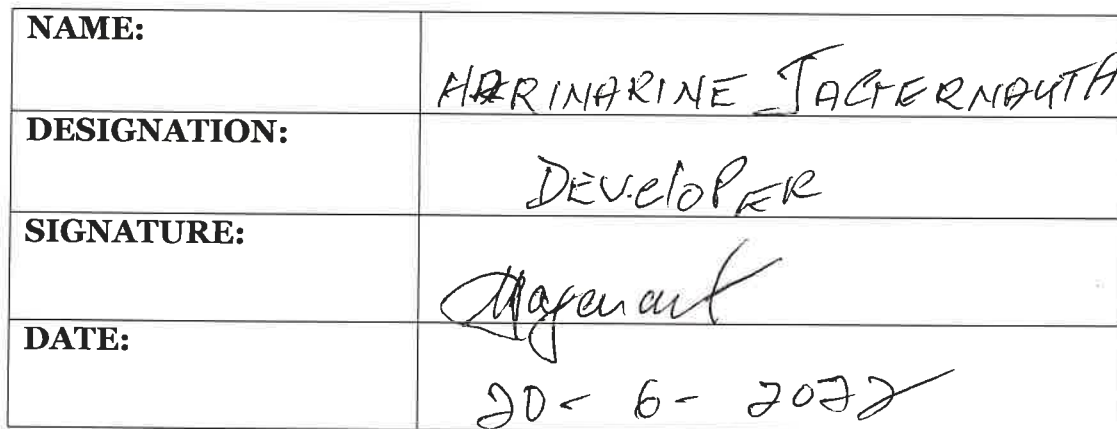 NAME:
HARINARINE JAGERNAUTH
DESIGNATION:
DEVElOPER
SIGNATURE:
DATE:
20- 6- 2022